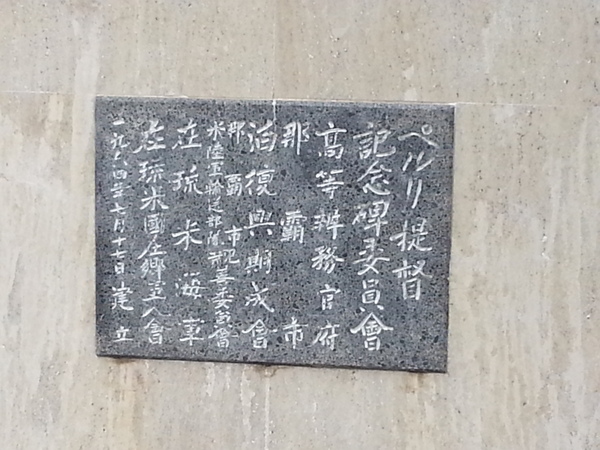 ペルリ提督
記念碑委員會
高等辨務官府
那覇市
泊復興期成會
那覇市
米陸軍輸送部隊親善委員會
在琉米海軍
在琉米國在郷軍人會
一九六四年七月十七日建立